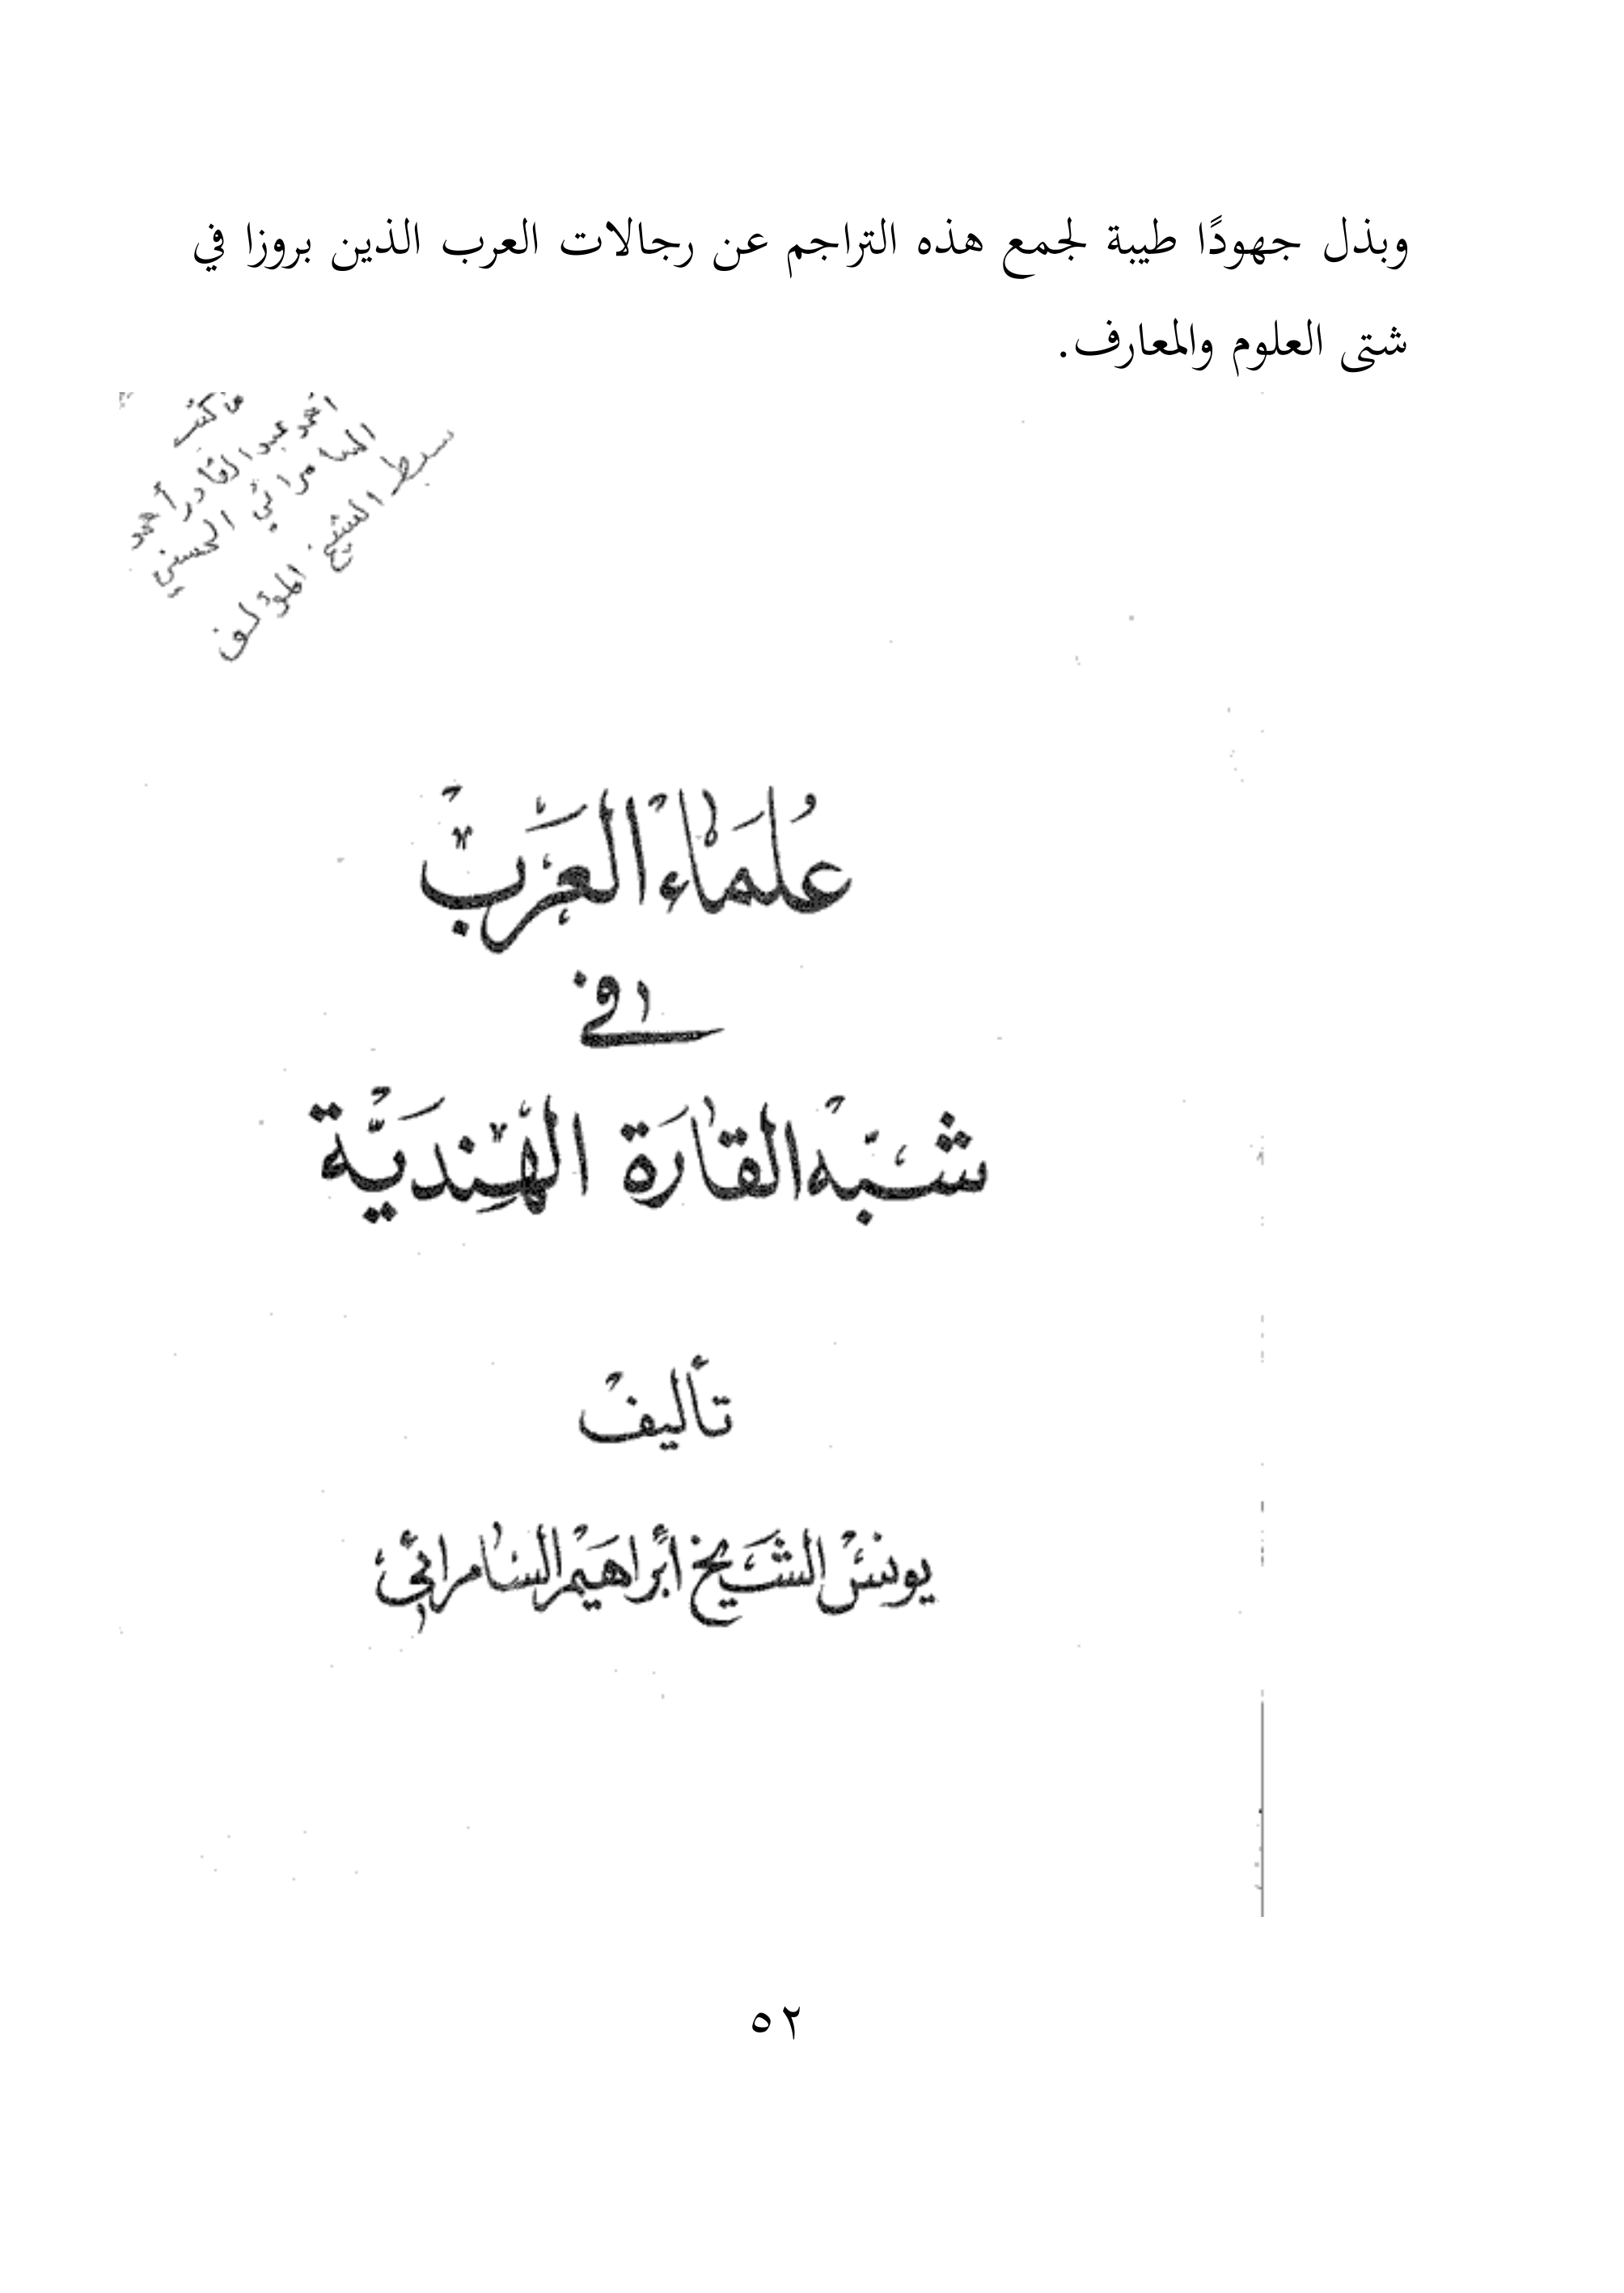 وبذل جهودًا طيبة لجمع هذه التراجم عن رجالات العرب الذين بروزا في
شتى العلوم والمعارف.
من كتب
احمد عبد القادر أحمد
السامرائي الحسني
سبط الشيخ المؤلف
عُلَمَاءُ العَرَبْ
في
شبْه القَارَة الهِنْديَّة
تأليفْ
يونسْ الشَيخ أبراهيْم السَامرائي
٥٢